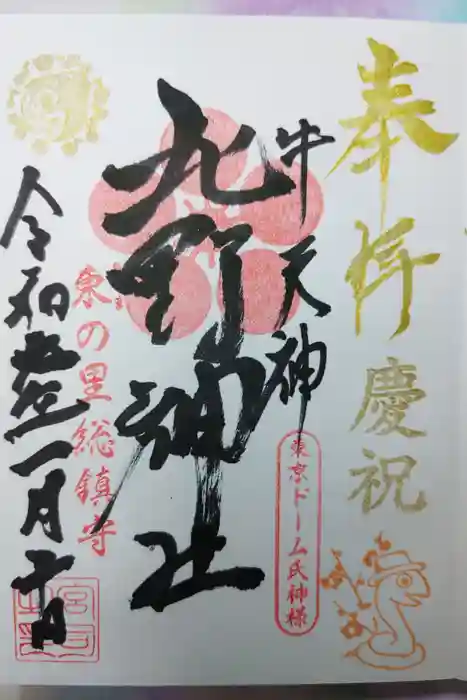 奉拝 慶祝
牛天神
北野神社
東京ドーム氏神様
の里総鎮守
令和七年一月十日
宮司之印